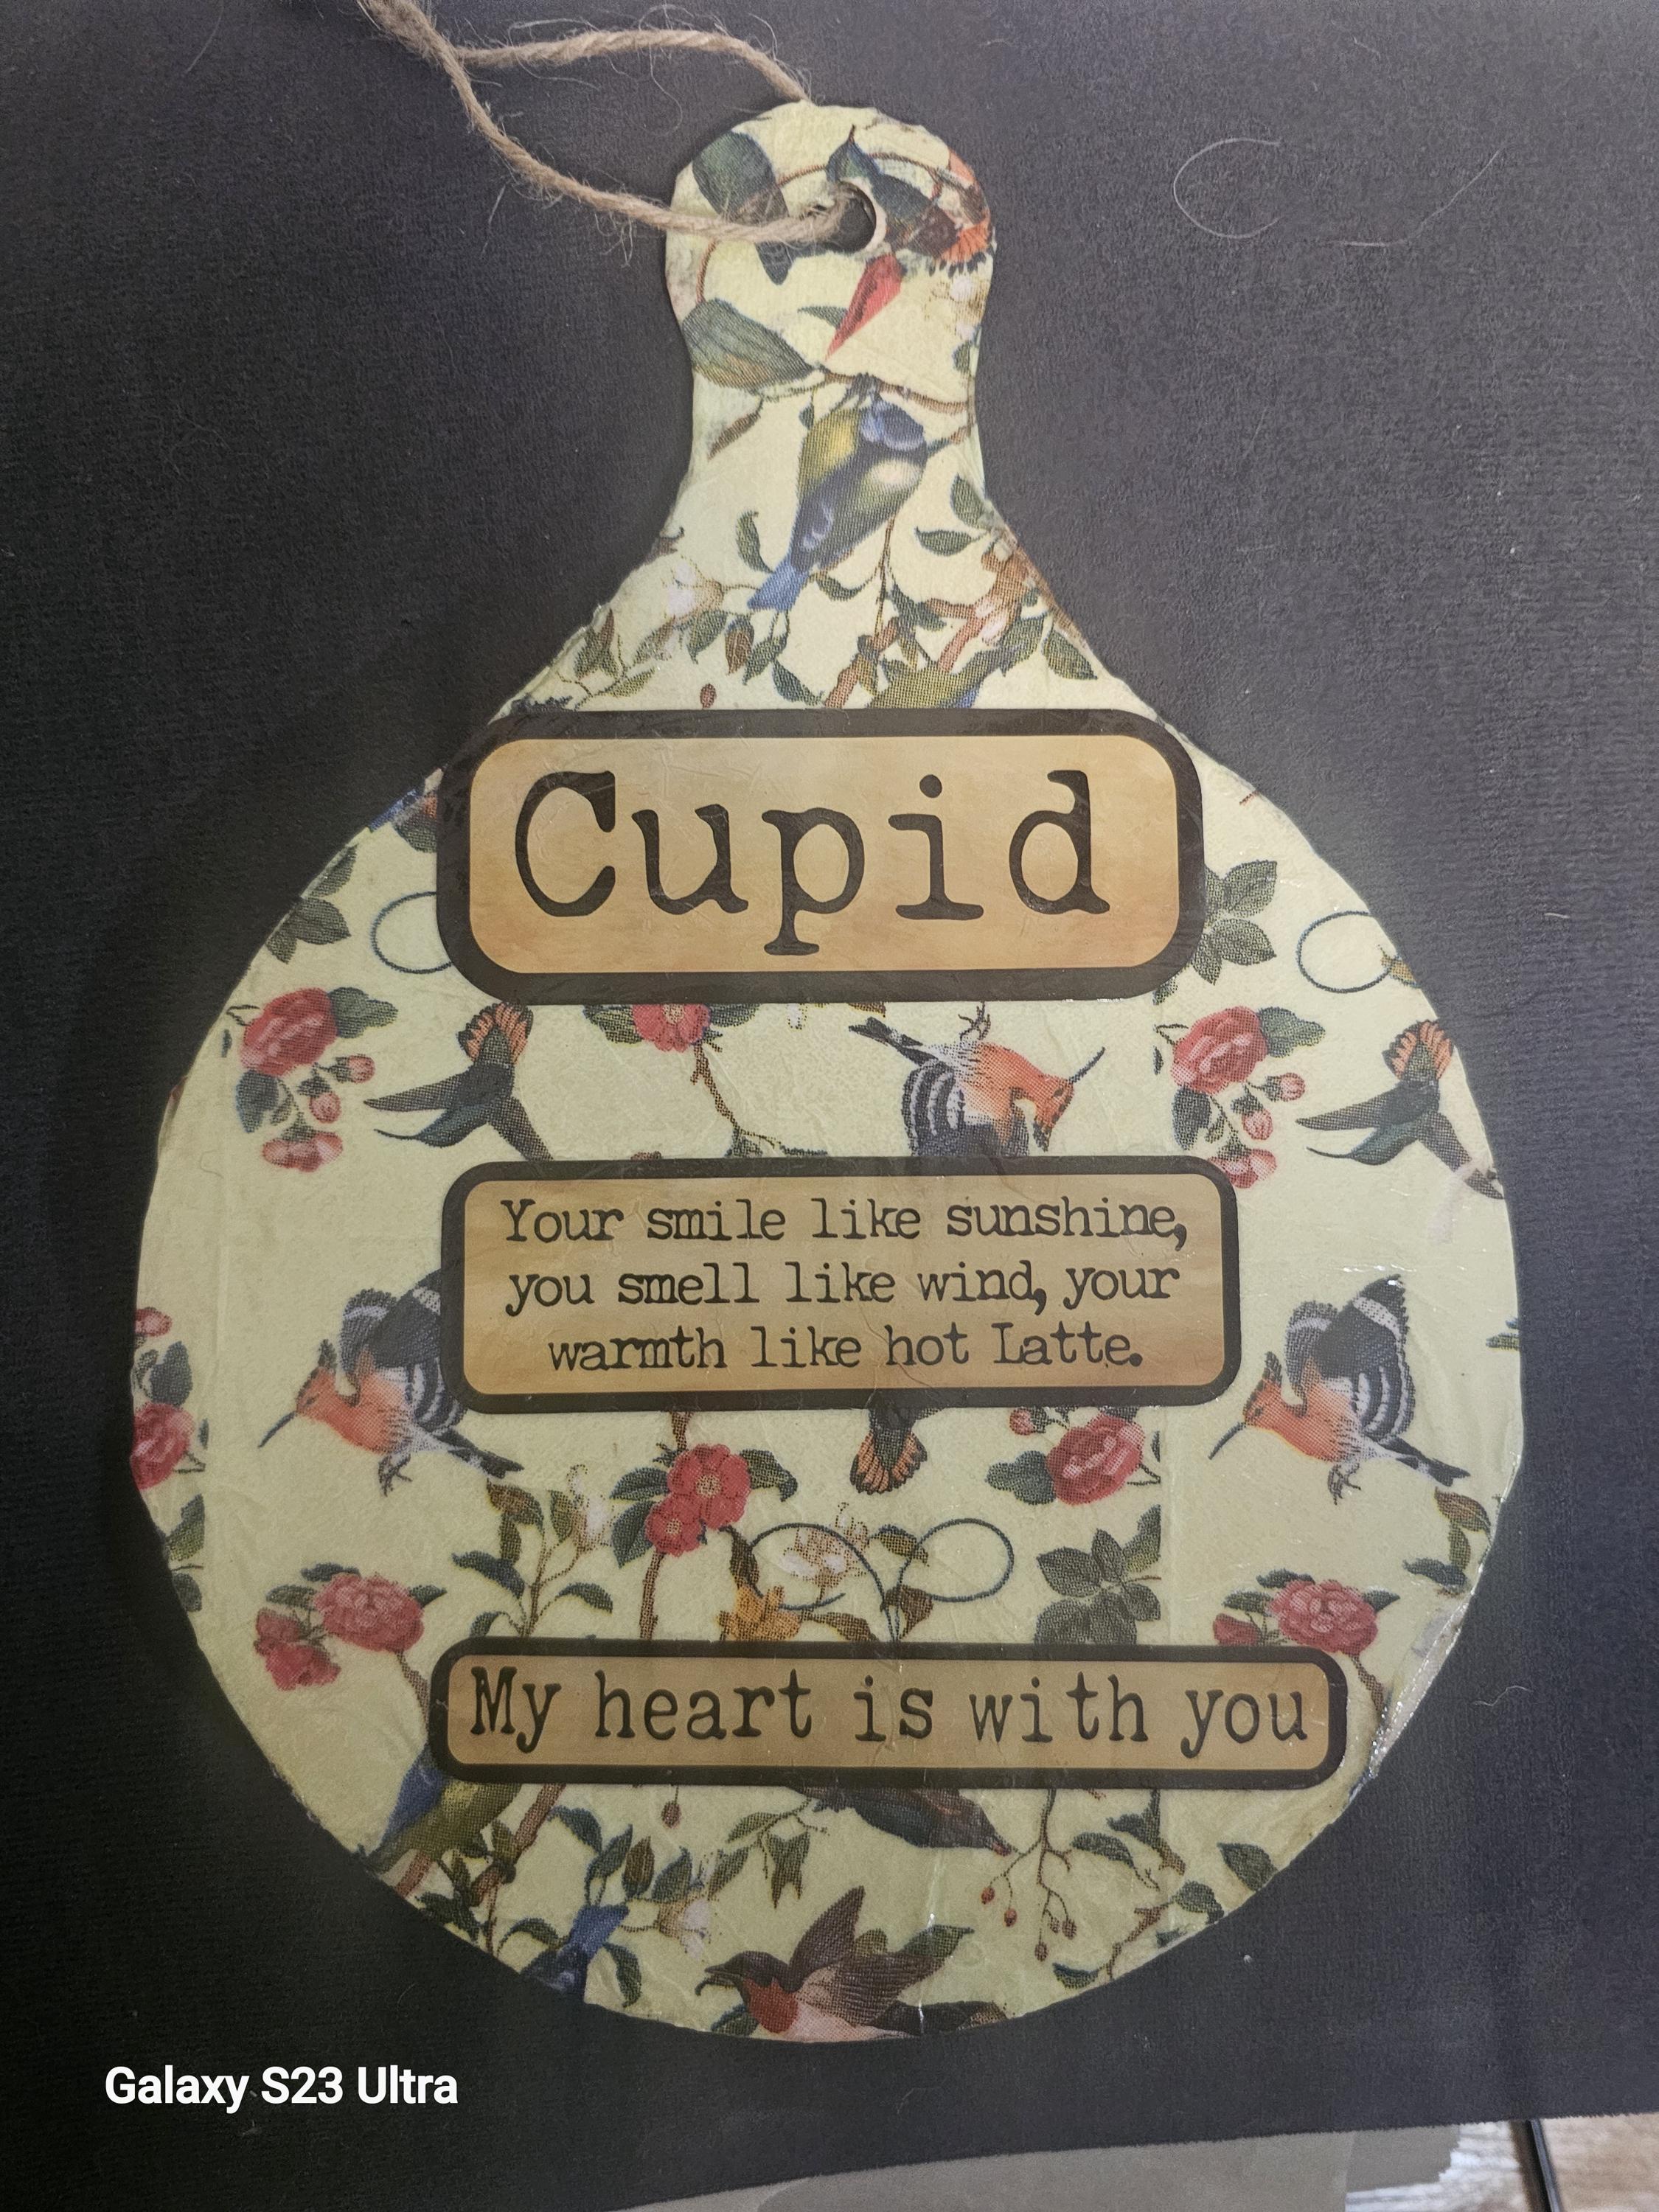 Cupid
Your smile like sunshine,
you smell like wind, your
warmth like hot Latte.
My heart is with you
Galaxy S23 Ultra